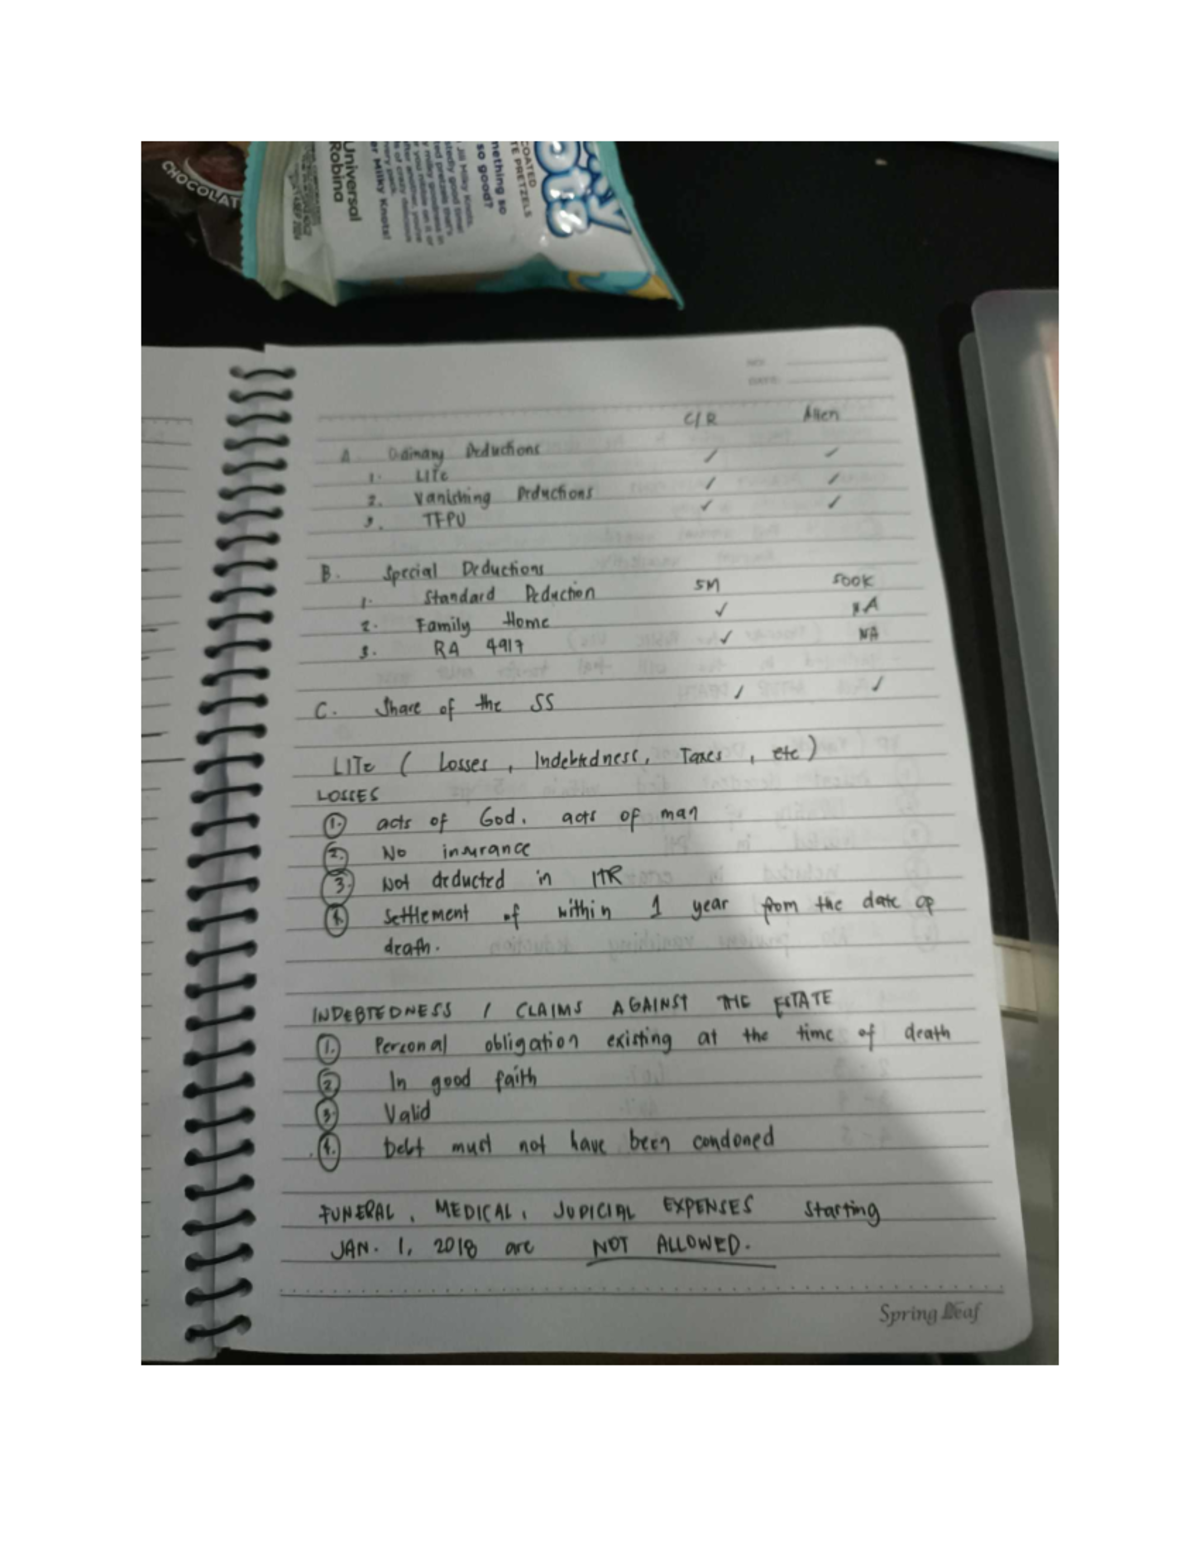 CHOCOLAT
Universal
Robina
er Milky Knots!
Jill Milky Knots.
mething so
so good?
COATED
TE PRETZELS
NO.
DATE:
C/R Alien
A. Odinary Deductions
1. LITe ✓ ✓
2. Vanishing Deductions ✓ ✓
3. TFPU ✓ ✓
B. Special Deductions
1. Standard Deduction 5M 500K
2. Family Home ✓ NA
3. RA 4917 ✓ NA
C. Share of the SS ✓ ✓
LITe ( Losses , Indebtedness, Taxes , etc )
LOSSES
1. acts of God, acts of man
2. No insurance
3. Not deducted in ITR
4. Settlement of within 1 year from the date of
death.
INDEBTEDNESS / CLAIMS AGAINST THE ESTATE
1. Personal obligation existing at the time of death
2. In good faith
3. Valid
4. Debt must not have been condoned
FUNERAL , MEDICAL, JUDICIAL EXPENSES starting
JAN. 1, 2018 are NOT ALLOWED.
Spring Leaf